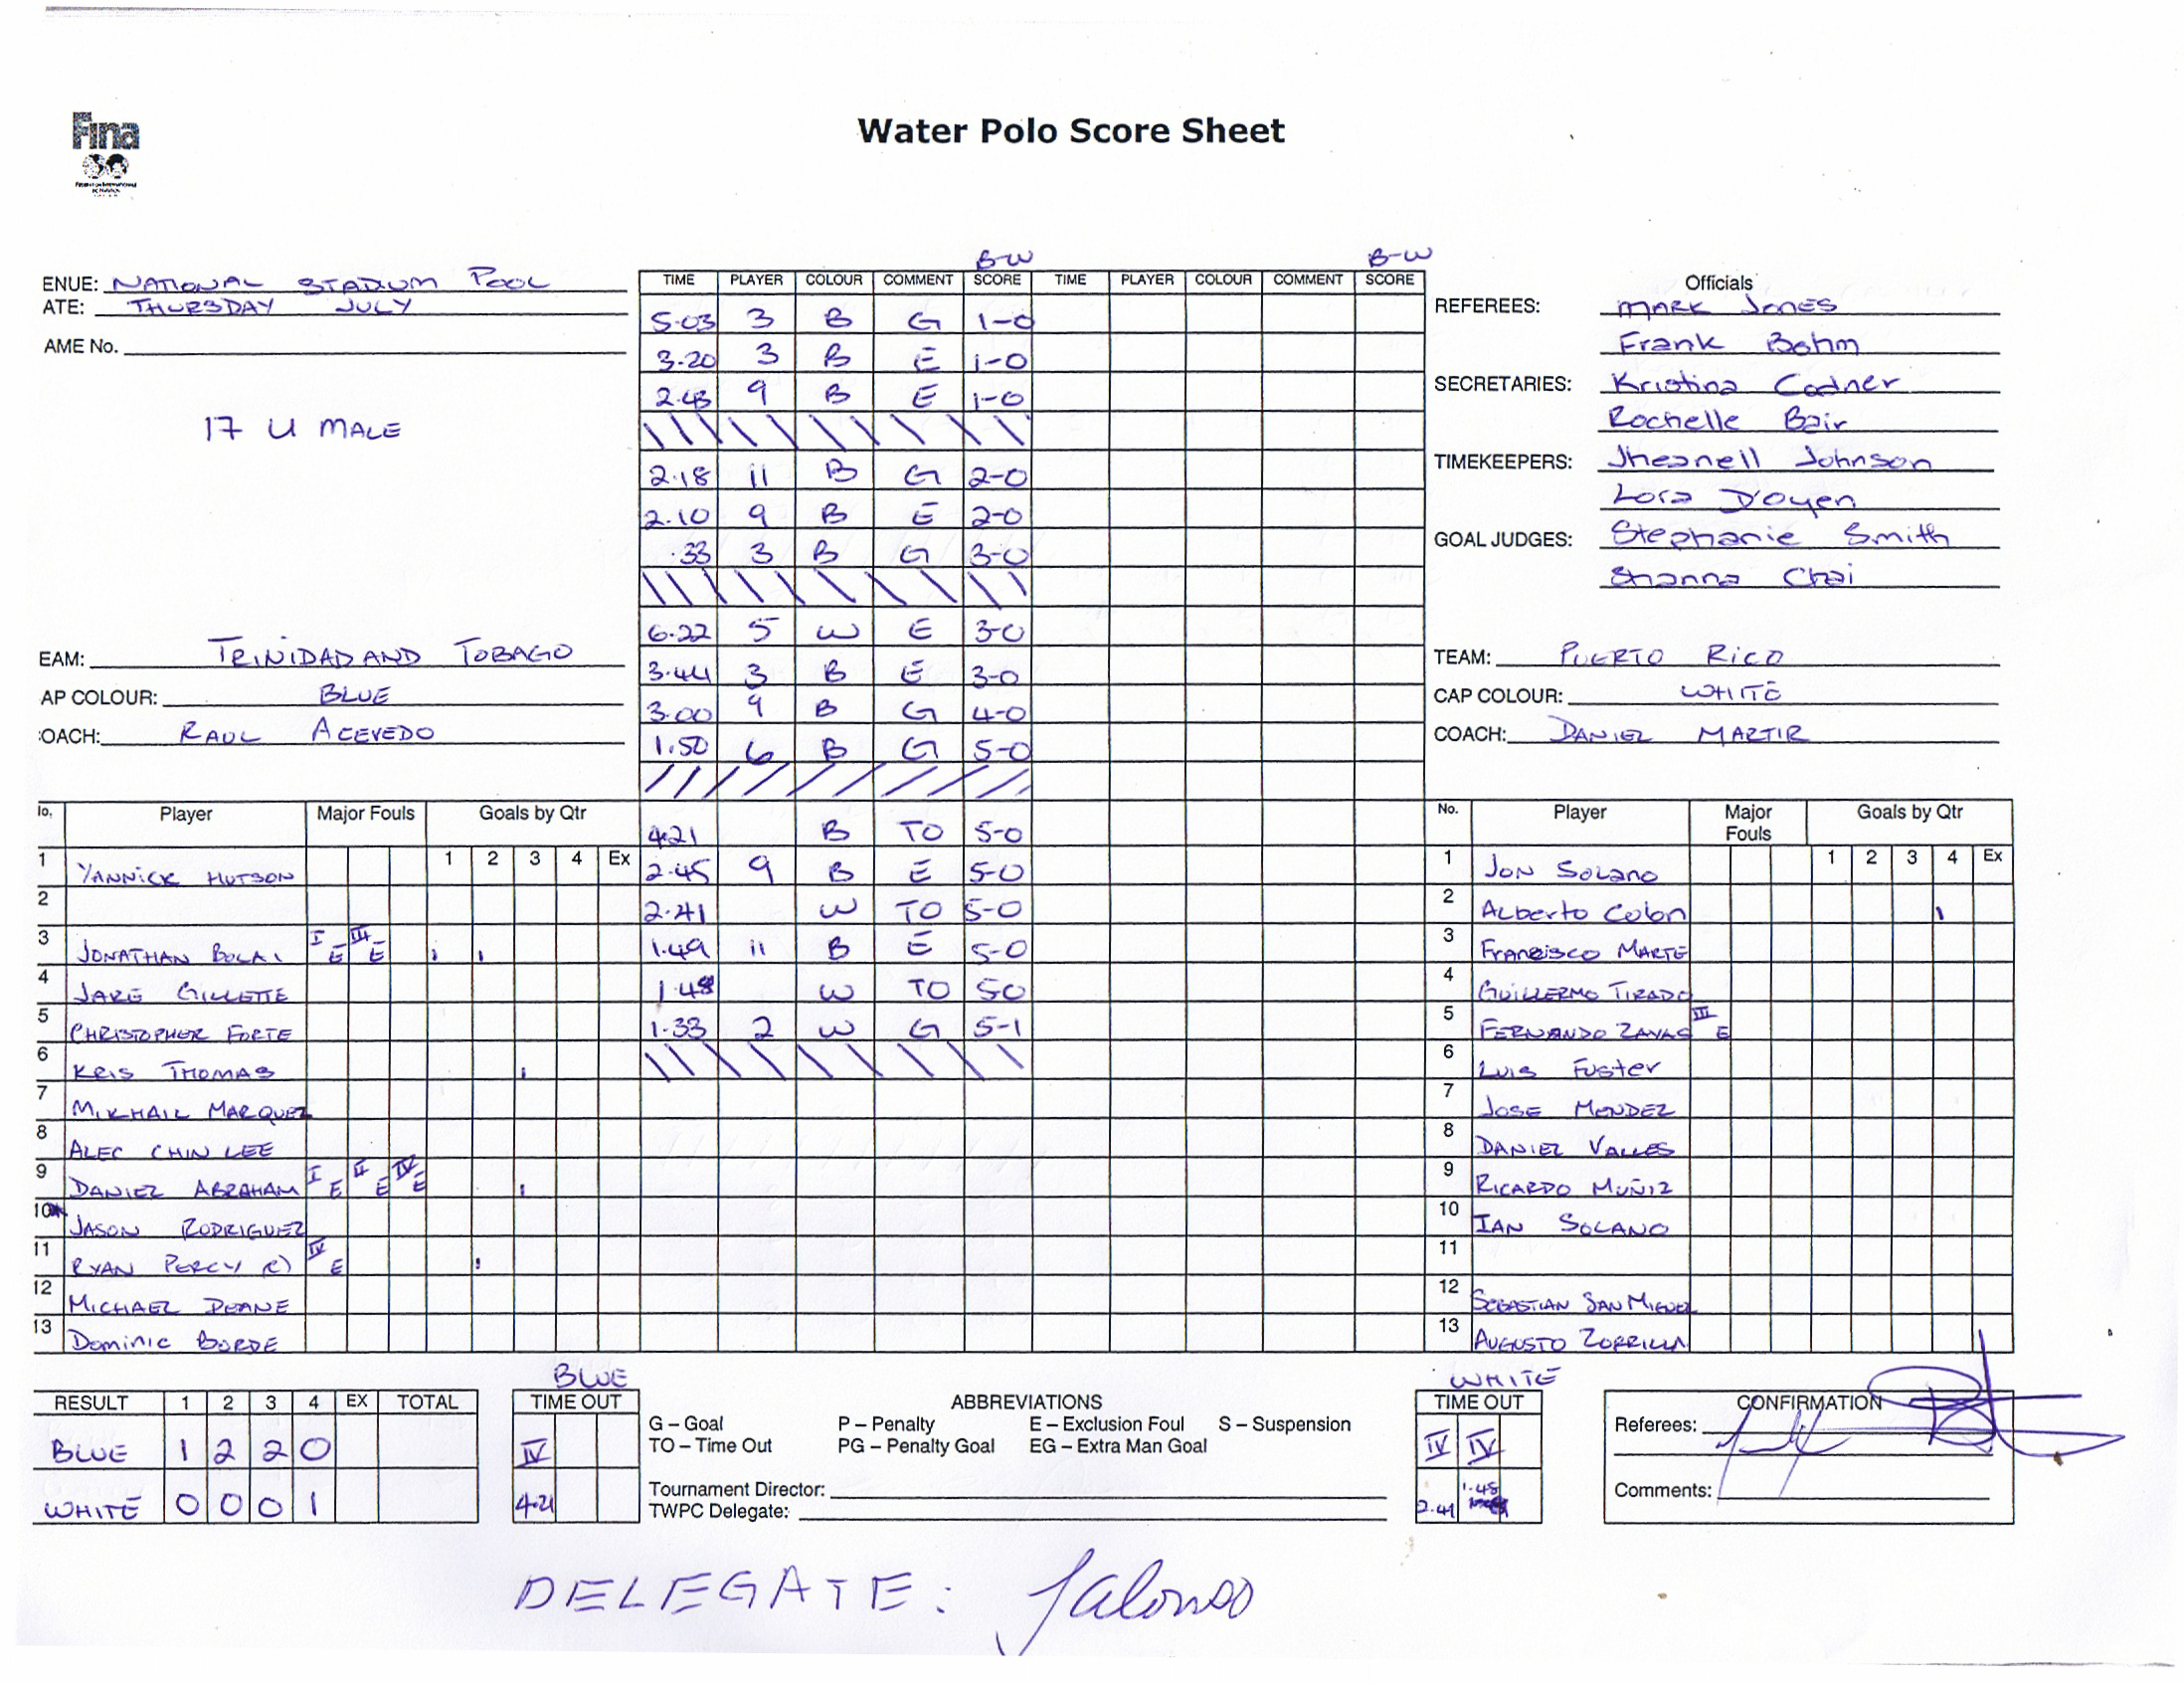 Fina
Water Polo Score Sheet
B-W B-W
ENUE: NATIONAL STADIUM POOL
ATE: THURSDAY JULY
AME No.
17 U MALE
EAM: TRINIDAD AND TOBAGO
AP COLOUR: BLUE
OACH: RAUL ACEVEDO
TIME PLAYER COLOUR COMMENT SCORE TIME PLAYER COLOUR COMMENT SCORE
5.03 3 B G 1-0
3.20 3 B E 1-0
2.43 9 B E 1-0
2.18 11 B G 2-0
2.10 9 B E 2-0
.33 3 B G 3-0
6.22 5 W E 3-0
3.44 3 B E 3-0
3.00 9 B G 4-0
1.50 6 B G 5-0
4.21 B TO 5-0
2.45 9 B E 5-0
2.41 W TO 5-0
1.49 11 B E 5-0
1.48 W TO 50
1.33 2 W G 5-1
Officials
REFEREES: MARK Jones
Frank Bohm
SECRETARIES: Kristina Cadner
Rochelle Bair
TIMEKEEPERS: Jhesneil Johnson
Lora D'Oyen
GOAL JUDGES: Stephanie Smith
Shanna Chai
TEAM: PUERTO RICO
CAP COLOUR: WHITE
COACH: DANIEL MARTIR
lo. Player Major Fouls Goals by Qtr
1 2 3 4 Ex
1 YANNICK HUTSON
2
3 JONATHAN BOLAI I E III E
4 JAKE GILLETTE
5 CHRISTOPHER FORTE
6 KRIS THOMAS
7 MIKHAIL MARQUEZ
8 ALEC CHIN LEE
9 DANIEL ABRAHAM I E II E IV E
10 JASON RODRIGUEZ
11 RYAN PERCY (C) IV E
12 MICHAEL DEANE
13 Dominic BORDE
No. Player Major Fouls Goals by Qtr
1 2 3 4 Ex
1 JON Solano
2 Alberto Colon
3 Francisco MARTE
4 GUILLERMO TIRADO
5 FERNANDO ZAYAS III E
6 LUIS Fuster
7 JOSE MENDEZ
8 DANIEL VALLES
9 RICARDO MUÑIZ
10 IAN SOLANO
11
12 SEBASTIAN SAN MIGUEL
13 AUGUSTO ZORRILLA
RESULT 1 2 3 4 EX TOTAL
BLUE 1 2 2 0
WHITE 0 0 0 1
BLUE
TIME OUT
IV
4.21
ABBREVIATIONS
G – Goal P – Penalty E – Exclusion Foul S – Suspension
TO – Time Out PG – Penalty Goal EG – Extra Man Goal
Tournament Director:
TWPC Delegate:
WHITE
TIME OUT
IV IV
2.41 1.48
CONFIRMATION
Referees:
Comments:
DELEGATE: Jalonso